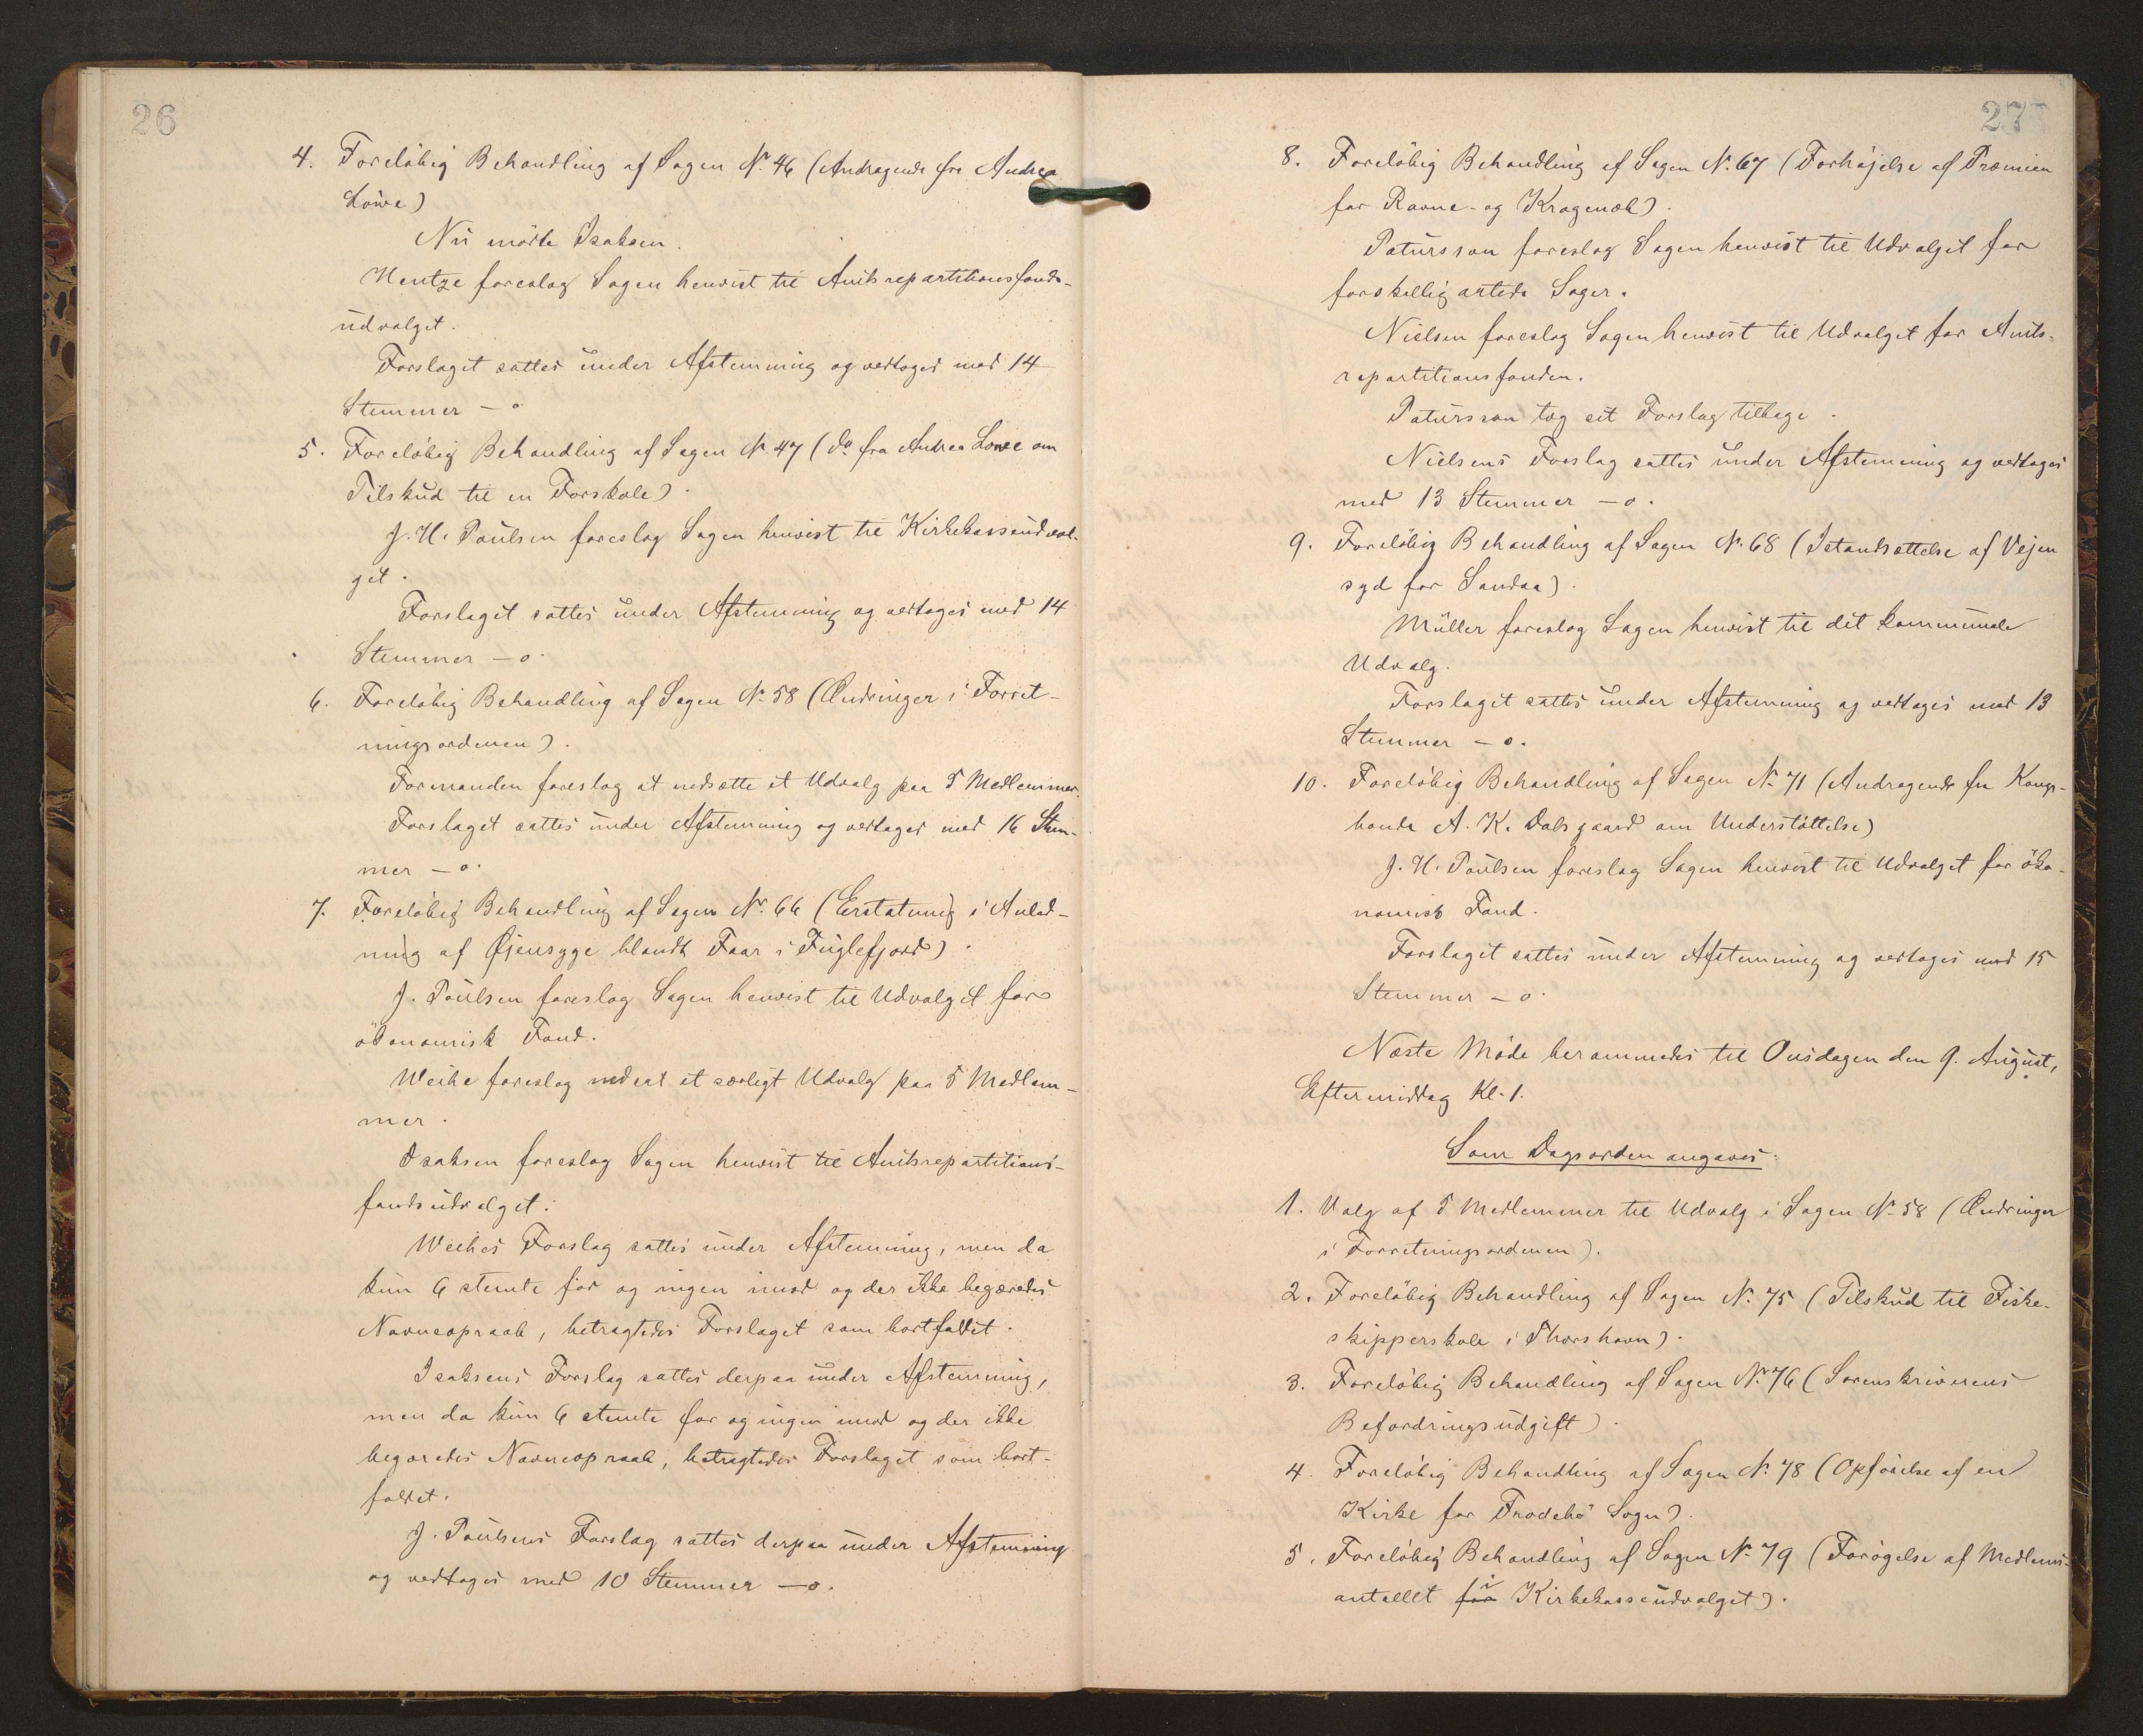 26
4. Foreløbig Behandling af Sagen № 46 (Andragende fra Andrea
Löwe)
Nu mødte Isaksen.
Hentze foreslog Sagen henvist til Amtsrepartitionsfonds-
udvalget.
Forslaget sattes under Afstemning og vedtoges med 14
Stemmer – o
5. Foreløbig Behandling af Sagen № 47 (do fra Andrea Lowe om
Tilskud til en Forskole).
J. H. Poulsen foreslog Sagen henvist til Kirkekasseudval-
get.
Forslaget sattes under Afstemning og vedtoges med 14
Stemmer – o.
6. Foreløbig Behandling af Sagen № 58 (Ændringer i Forret-
ningsordenen).
Formanden foreslog at nedsætte et Udvalg paa 5 Medlemmer.
Forslaget sattes under Afstemning og vedtoges med 16 Stem-
mer – o.
7. Foreløbig Behandling af Sagen № 66 (Erstatning i Anled-
ning af Øjensyge blandt Faar i Fuglefjord).
J. Poulsen foreslog Sagen henvist til Udvalget for
økonomisk Fond.
Weihe foreslog nedsat et særligt Udvalg paa 5 Medlem-
mer.
Isaksen foreslog Sagen henvist til Amtsrepartitions-
fondsudvalget.
Weihes Forslag sattes under Afstemning, men da
kun 6 stemte for og ingen imod og der ikke begæredes
Navneopraab, betragtedes Forslaget som bortfaldet.
Isaksens Forslag sattes derpaa under Afstemning,
men da kun 6 stemte for og ingen imod og der ikke
begæredes Navneopraab, betragtedes Forslaget som bort-
faldet.
J. Poulsens Forslag sattes derpaa under Afstemning
og vedtoges med 10 Stemmer – o.
27
8. Foreløbig Behandling af Sagen № 67 (Forhøjelse af Præmien
for Ravne- og Kragenæb).
Patursson foreslog Sagen henvist til Udvalget for
forskelligartede Sager.
Nielsen foreslog Sagen henvist til Udvalget for Amts-
repartitionsfonden.
Patursson tog sit Forslag tilbage.
Nielsens Forslag sattes under Afstemning og vedtoges
med 13 Stemmer – o.
9. Foreløbig Behandling af Sagen № 68 (Istandsættelse af Vejen
syd for Sandaa).
Müller foreslog Sagen henvist til det kommunale
Udvalg.
Forslaget sattes under Afstemning og vedtoges med 13
Stemmer – o.
10. Foreløbig Behandling af Sagen № 71 (Andragende fra Kongs-
bonde A. K. Dalsgaard om Understøttelse)
J. H. Poulsen foreslog Sagen henvist til Udvalget for øko-
nomisk Fond.
Forslaget sattes under Afstemning og vedtoges med 15
Stemmer – o.
Næste Møde berammedes til Onsdagen den 9. August,
Eftermiddag Kl. 1.
Som Dagsorden angaves:
1. Valg af 5 Medlemmer til Udvalg i Sagen № 58 (Ændringer
i Forretningsordenen).
2. Foreløbig Behandling af Sagen № 75 (Tilskud til Fiske-
skipperskole i Thorshavn).
3. Foreløbig Behandling af Sagen № 76 (Sorenskriverens
Befordringsudgift).
4. Foreløbig Behandling af Sagen № 78 (Opførelse af en
Kirke for Frodebø Sogn).
5. Foreløbig Behandling af Sagen № 79 (Forøgelse af Medlems-
antallet for i Kirkekasseudvalget).